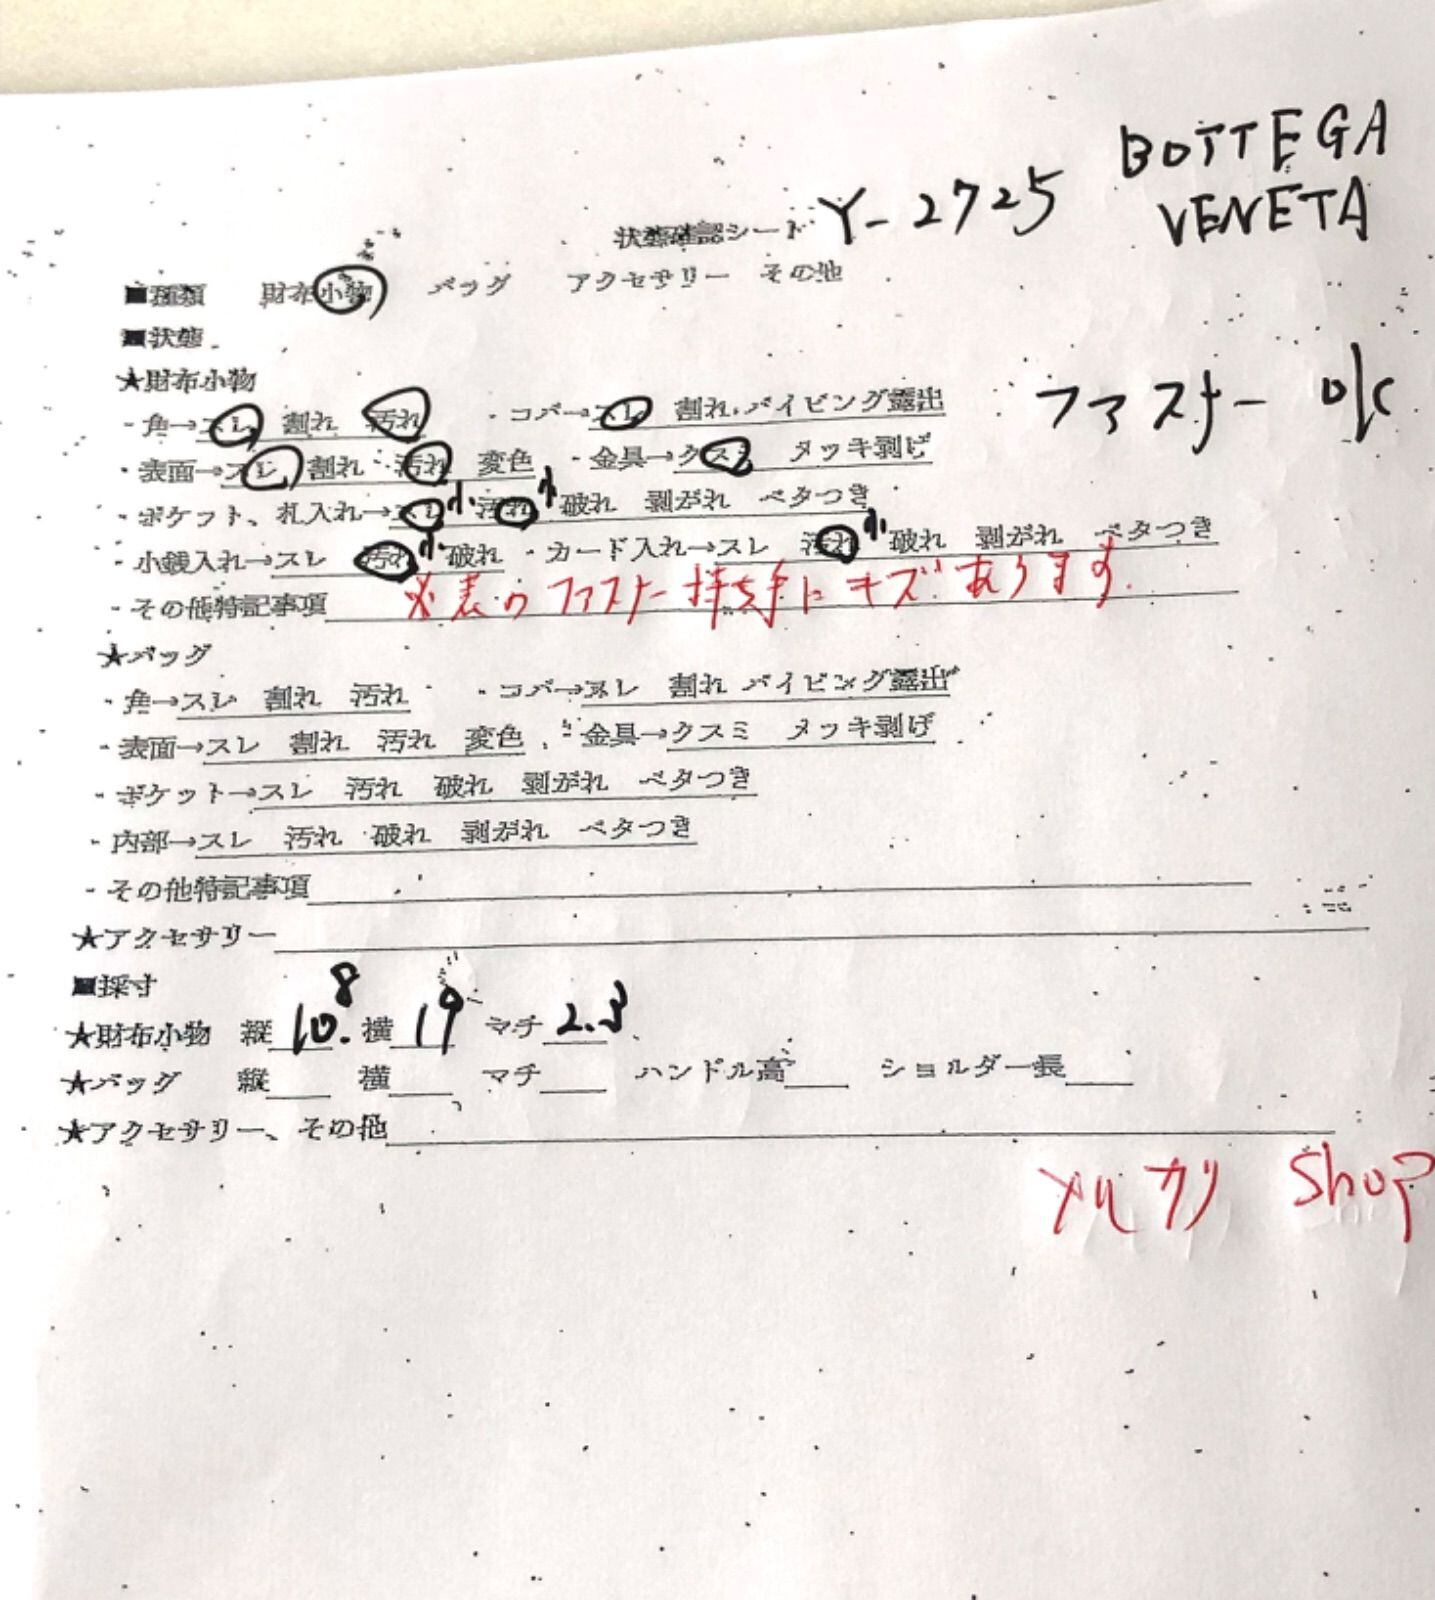 BOTTEGA
VENETA
状態確認シート Y-2725
■種類 財布小物 バッグ アクセサリー その他
■状態
★財布小物
ファスナー OK
・角→スレ 割れ 汚れ ・コバ→スレ 割れ パイピング露出
・表面→スレ 割れ 汚れ 変色 ・金具→クスミ メッキ剥げ
・ポケット、札入れ→スレ 小 汚れ 小 破れ 剥がれ ベタつき
・小銭入れ→スレ 汚れ 小 破れ ・カード入れ→スレ 汚れ 小 破れ 剥がれ ベタつき
・その他特記事項 ※表のファスナー持ち手にキズあります。
★バッグ
・角→スレ 割れ 汚れ ・コバ→スレ 割れ パイピング露出
・表面→スレ 割れ 汚れ 変色 ・金具→クスミ メッキ剥げ
・ポケット→スレ 汚れ 破れ 剥がれ ベタつき
・内部→スレ 汚れ 破れ 剥がれ ベタつき
・その他特記事項
★アクセサリー
■採寸
★財布小物 縦 10.8 横 19 マチ 2.3
★バッグ 縦 横 マチ ハンドル高 ショルダー長
★アクセサリー、その他
メルカリ Shop